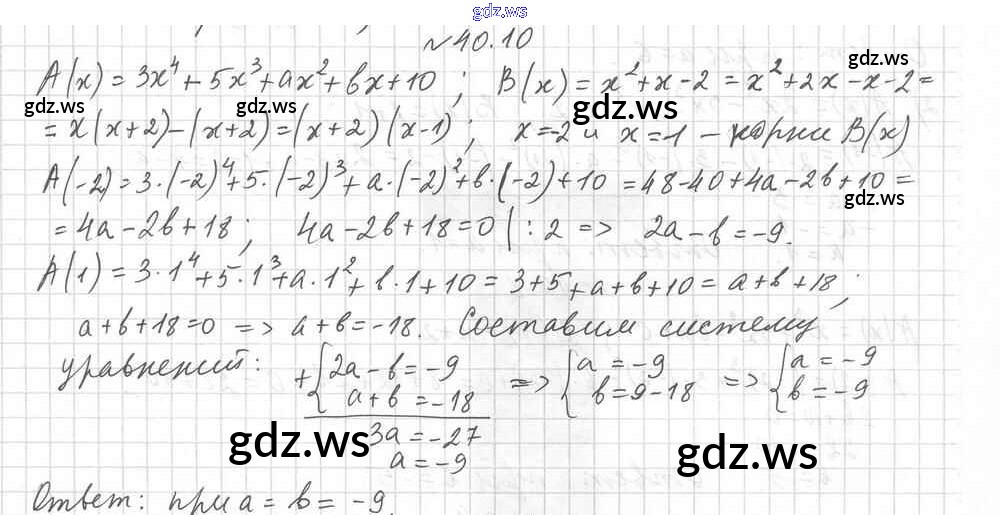 gdz.ws
№40.10
A(x) = 3x⁴ + 5x³ + ax² + bx + 10 ; B(x) = x² + x - 2 = x² + 2x - x - 2 =
gdz.ws gdz.ws gdz.ws
= x(x+2) - (x+2) = (x+2)(x-1) ; x = -2 и x = 1 - корни B(x)
A(-2) = 3·(-2)⁴ + 5·(-2)³ + a·(-2)² + b·(-2) + 10 = 48 - 40 + 4a - 2b + 10 =
gdz.ws
= 4a - 2b + 18 ; 4a - 2b + 18 = 0 | : 2 => 2a - b = -9.
A(1) = 3·1⁴ + 5·1³ + a·1² + b·1 + 10 = 3 + 5 + a + b + 10 = a + b + 18 ;
a + b + 18 = 0 => a + b = -18. Составим систему
уравнений: + { 2a - b = -9 => { a = -9 => { a = -9
a + b = -18 b = 9 - 18 b = -9
3a = -27
a = -9
gdz.ws gdz.ws
Ответ: при a = b = -9.